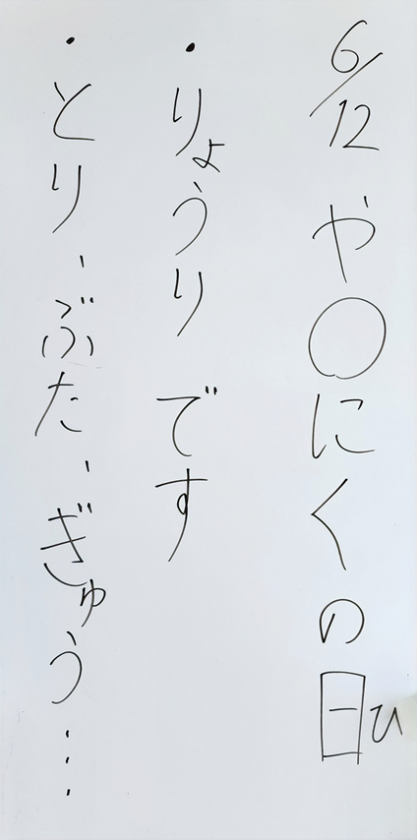 6/12 や〇にくの日ひ
・りょうり です
・とり、ぶた、ぎゅう…